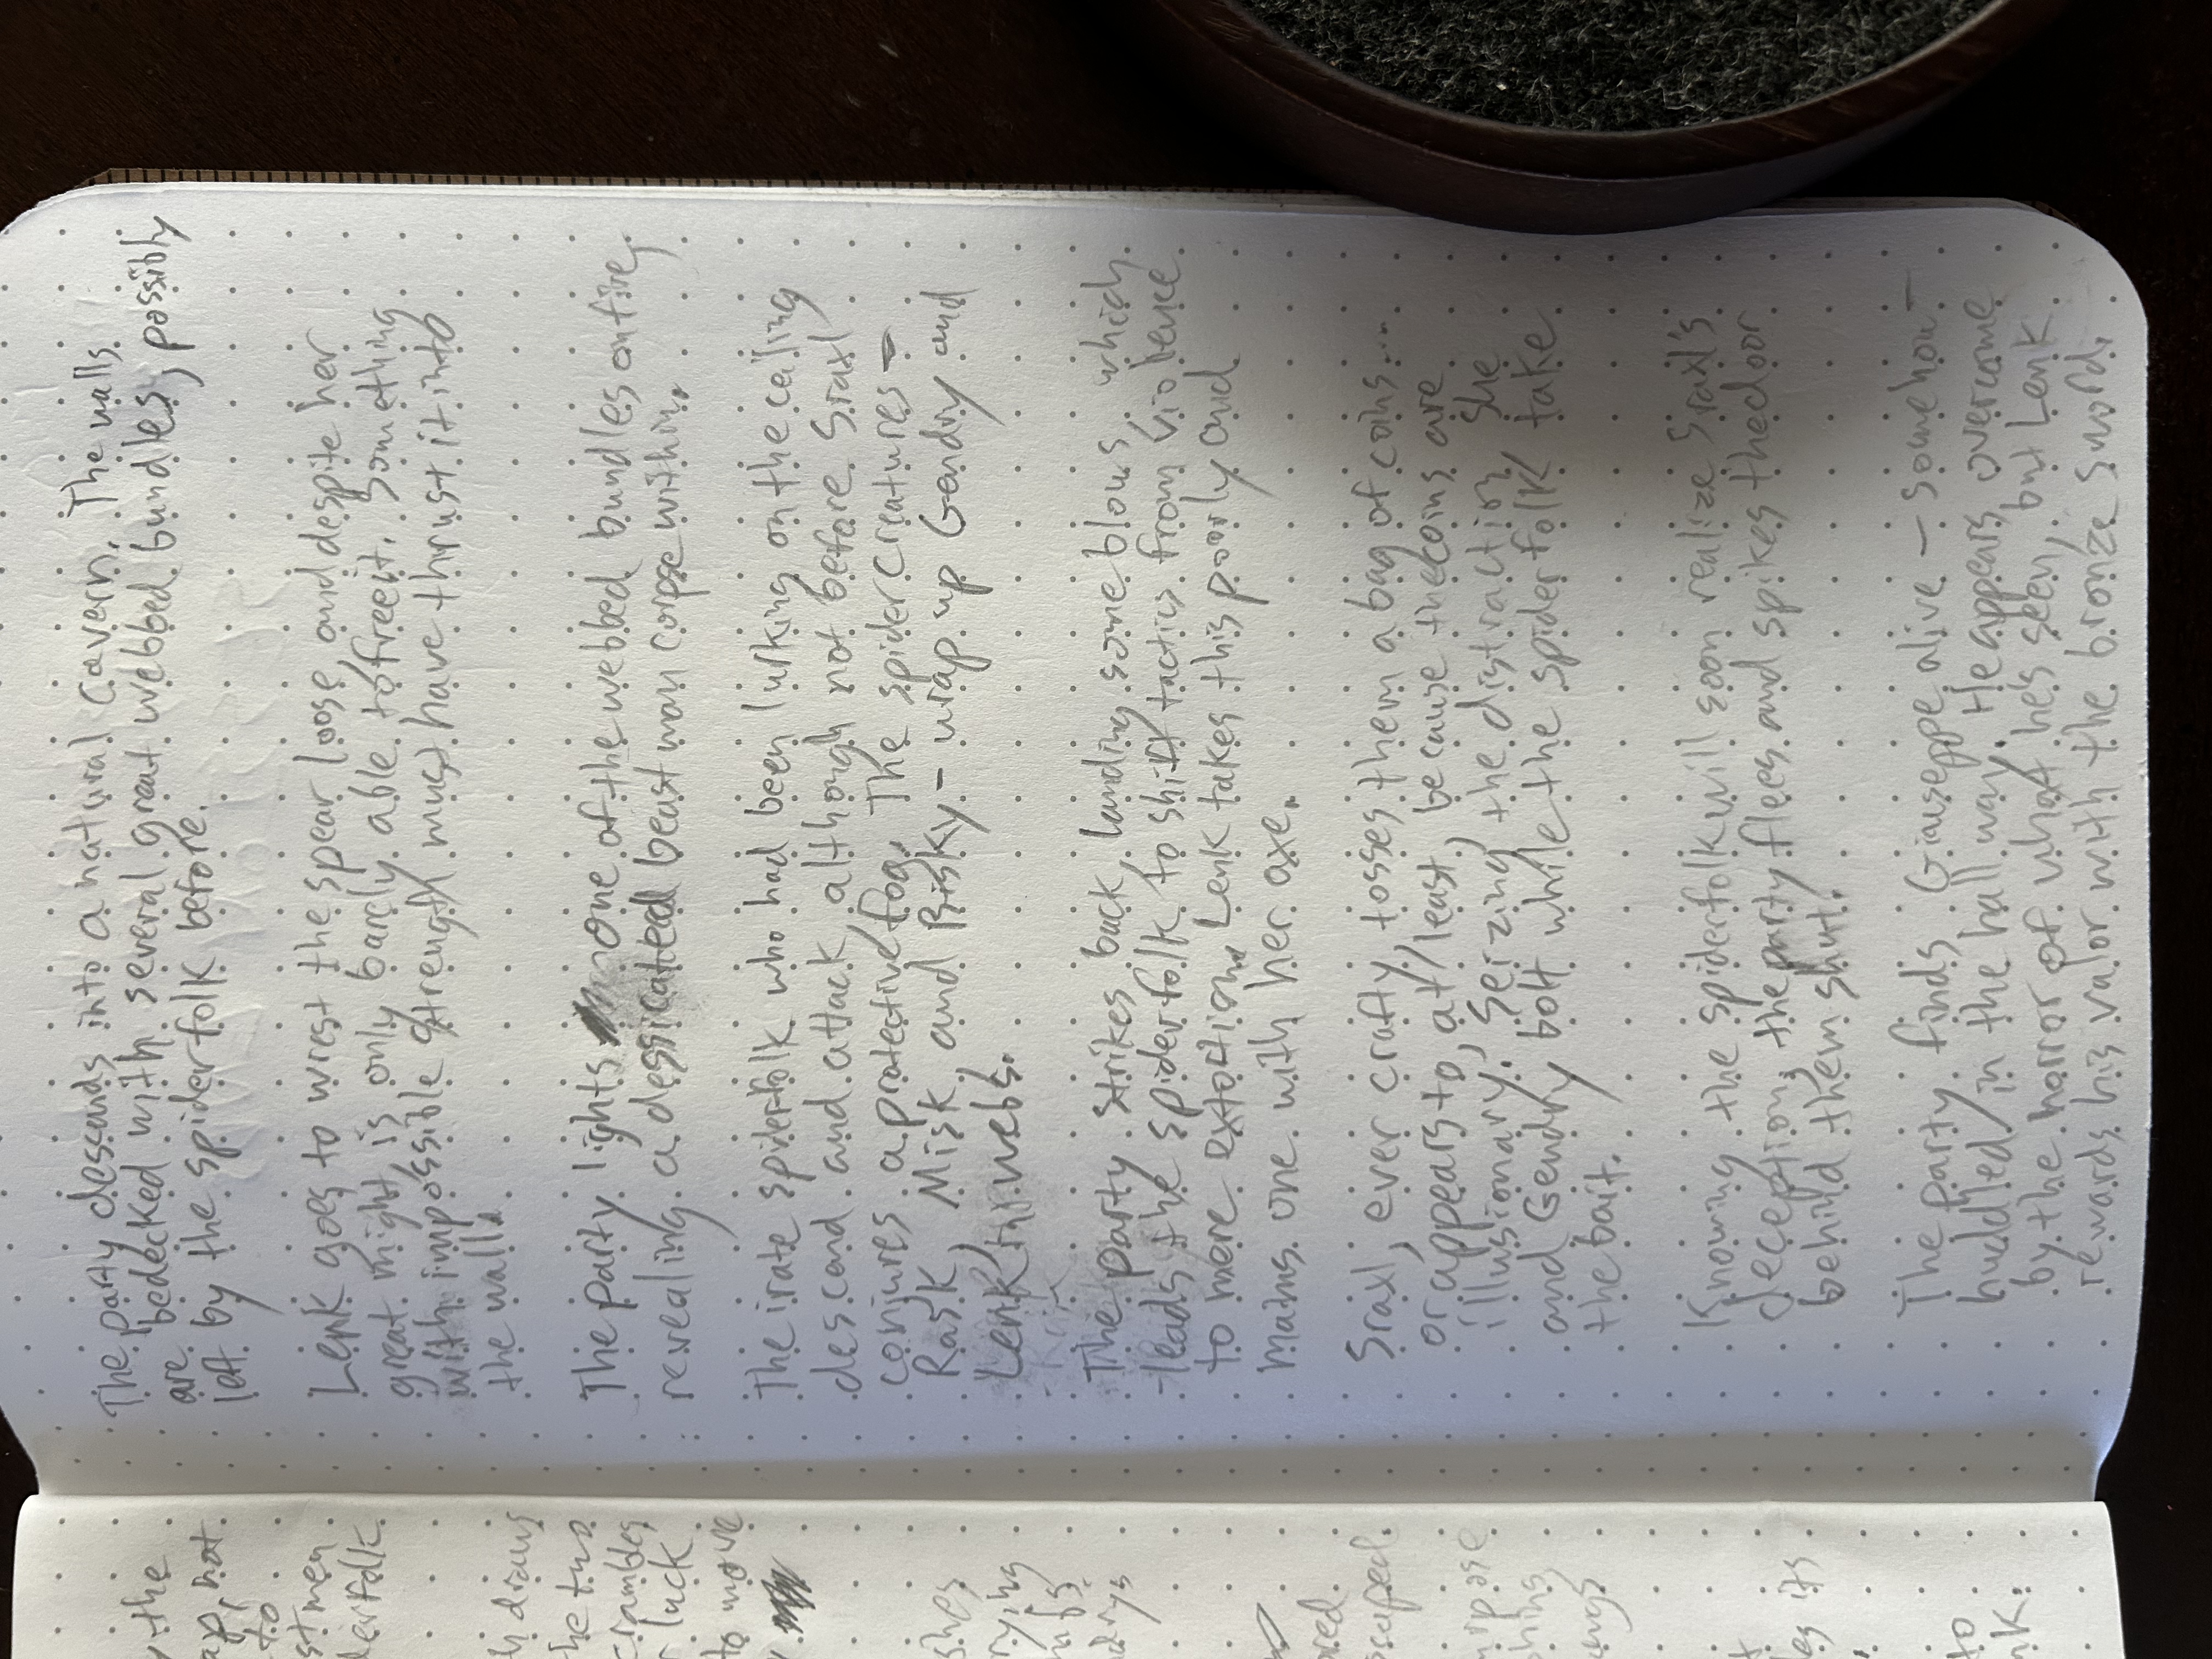 The party descends into a natural cavern. The walls
are bedecked with several great webbed bundles, possibly
left by the spiderfolk before.
Lenk goes to wrest the spear loose and despite her
great might is only barely able to free it. Something
with impossible strength must have thrust it into
the wall.
The party lights one of the webbed bundles on fire,
revealing a dessicated beast man corpse within.
The irate spiderfolk who had been lurking on the ceiling
descend and attack although not before Sraxl
conjures a protective fog. The spider creatures -
Rask, Misk, and Bisky - wrap up Gendry and
Lenk in webs.
The party strikes back, landing some blows, which
leads the spiderfolk to shift tactics from violence
to more extortion. Lenk takes this poorly and
maims one with her axe.
Sraxl, ever crafty, tosses them a bag of coins....
or appears to, at least, because the coins are
illusionary. Seizing the distraction, she
and Gendry bolt while the spiderfolk take
the bait.
Knowing the spiderfolk will soon realize Sraxl's
deception, the party flees and spikes the door
behind them shut.
The party finds Giuseppe alive - somehow -
huddled in the hallway. He appears overcome
by the horror of what he's seen, but Lenk
rewards his valor with the bronze sword.
the
not
to
men
draws
the two
luck
to move
its
to